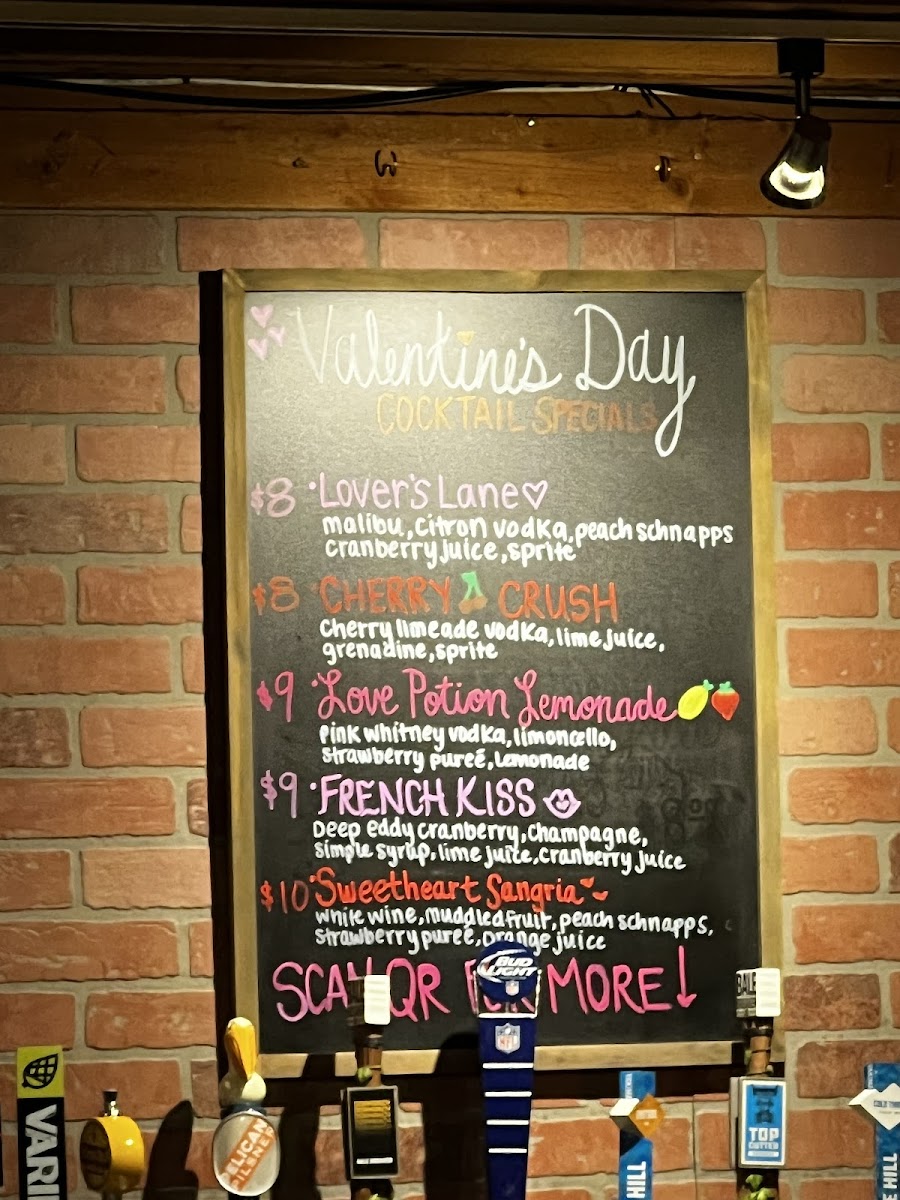 Valentine's Day
COCKTAIL SPECIALS
$8 • Lover's Lane ♡
malibu, citron vodka, peach schnapps
cranberry juice, sprite
$8 • CHERRY CRUSH
Cherry limeade vodka, lime juice,
grenadine, sprite
$9 • Love Potion Lemonade
pink whitney vodka, limoncello,
Strawberry pureé, Lemonade
$9 • FRENCH KISS
Deep eddy cranberry, champagne,
simple syrup, lime juice, cranberry juice
$10 • Sweetheart Sangria
white wine, muddled fruit, peach schnapps,
strawberry pureé, orange juice
SCAN QR FOR MORE!
BUD
LIGHT
NFL
VARI
PELICAN
PILSNER
TOP
CUTTER
HILL
E HILL